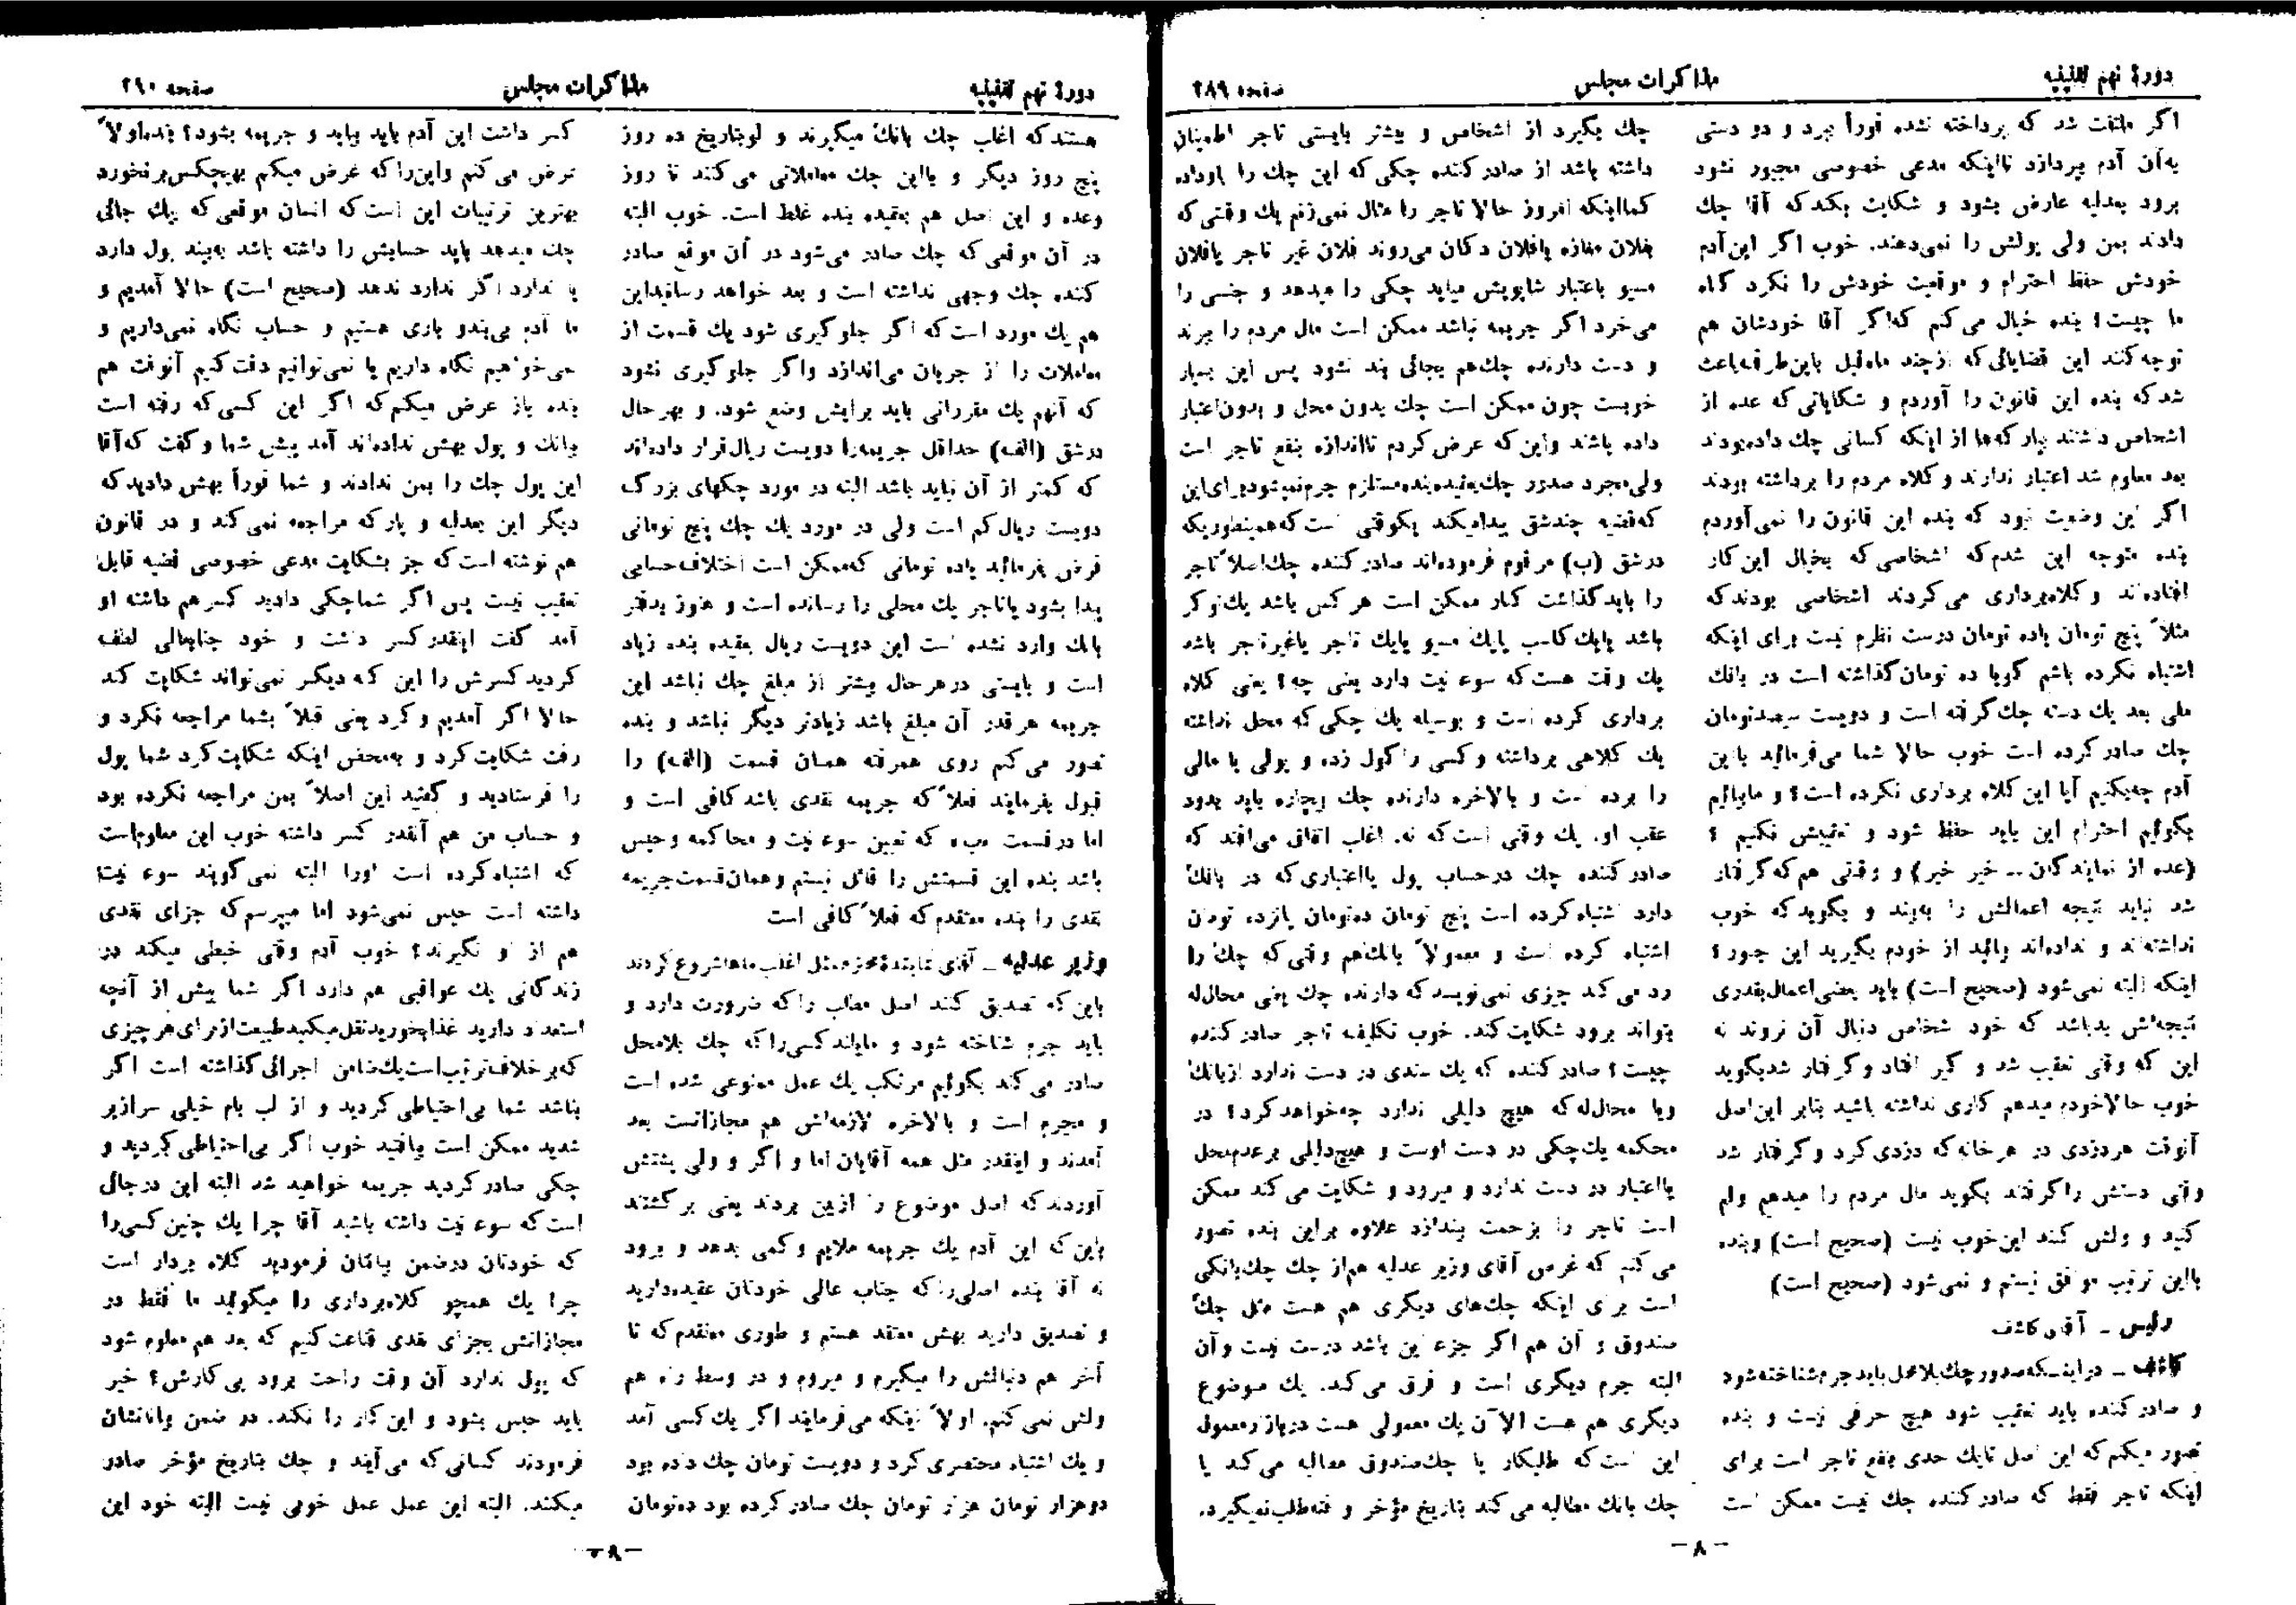 دورهٔ نهم تقنینیه
مذاکرات مجلس
صفحه ۲۸۹
اگر ملتفت شد که پرداخته نشده فوراً ببرد و دو دستی
به‌آن آدم بپردازد تااینکه مدعی خصوصی مجبور نشود
برود بعدلیه عارض بشود و شکایت بکند که آقا چك
دادند بمن ولی پولش را نمی‌دهند. خوب اگر این‌آدم
خودش حفظ احترام و موقعیت خودش را نکرد گناه
ما چیست؟ بنده خیال می‌کنم که‌اگر آقا خودشان هم
توجه کنند این قضایائی‌که ازچند ماه‌قبل باین‌طرف‌باعث
شد که بنده این قانون را آوردم و شکایاتی‌که عده از
اشخاص داشتند پارکه‌ها از اینکه کسانی چك داده‌بودند
بعد معلوم شد اعتبار ندارند و کلاه مردم را برداشته بودند
اگر این وضعیت نبود که بنده این قانون را نمی‌آوردم
بنده متوجه این شدم‌که اشخاصی که بخیال این‌کار
افتاده‌اند و کلاه‌برداری می‌کردند اشخاصی بودند که
مثلاً پنج تومان یاده تومان درست نظرم نیست برای اینکه
اشتباه نکرده باشم گویا ده تومان گذاشته است در بانك
ملی بعد یك دسته چك گرفته است و دویست سیصدتومان
چك صادر کرده است خوب حالا شما می‌فرمائید بااین
آدم چه‌بکنیم آیا این کلاه برداری نکرده است؟ و مابیائیم
بگوئیم احترام این باید حفظ شود و تعقیبش نکنیم ؟
(عده از نمایندگان ــ خیر خیر) و وقتی هم‌که گرفتار
شد نباید نتیجه اعمالش را به‌بیند و بگوید که خوب
نداشته‌اند و نداده‌اند بیائید از خودم بگیرید این جور؟
اینکه البته نمی‌شود (صحیح است) باید بعضی‌اعمال‌بقدری
نتیجه‌اش بدباشد که خود اشخاص دنبال آن نروند نه
این که وقتی تعقیب شد و گیر افتاد و گرفتار شدبگوید
خوب حالاخودم میدهم کاری نداشته باشید بنابر این‌اصل
آنوقت هردزدی در هرخانه که دزدی کرد و گرفتار شد
وقتی دستش را گرفتند بگوید مال مردم را میدهم ولم
کنید و ولش کنند این‌خوب نیست (صحیح است) وبنده
بااین ترتیب موافق نیستم و نمی‌شود (صحیح است)
رئیس ــ آقای کاشف
کاشف ــ دراینکه صدور چك بلامحل باید جرم‌شناخته‌شود
و صادرکننده باید تعقیب شود هیچ حرفی نیست و بنده
تصور میکنم که این اصل تایك حدی بنفع تاجر است برای
اینکه تاجر فقط که صادرکننده چك نیست ممکن است
چك بگیرد از اشخاص و بیشتر بایستی تاجر اطمینان
داشته باشد از صادرکننده چکی که این چك را باوداده
کمااینکه امروز حالا تاجر را مثال نمی‌زنم یك وقتی که
فلان مغازه یافلان دکان می‌روند فلان غیر تاجر یافلان
مسیو باعتبار شاپویش میاید چکی را میدهد و جنسی را
می‌خرد اگر جریمه نباشد ممکن است مال مردم را ببرند
و دست دارنده چك‌هم بجائی بند نشود پس این بسیار
خوبست چون ممکن است چك بدون محل و بدون‌اعتبار
داده باشند واین‌که عرض کردم تااندازه بنفع تاجر است
ولی‌مجرد صدور چك‌بعقیده‌بنده‌مستلزم جرم‌نمیشودبرای‌این
که‌قضیه چندشق پیدامیکند یکوقتی است‌که‌همینطوریکه
درشق (ب) مرقوم فرموده‌اند صادرکننده چك‌اصلاً تاجر
را بایدگذاشت کنار ممکن است هرکس باشد یك‌نوکر
باشد یایك‌کاسب یایك مسیو یایك تاجر یاغیرتاجر باشد
یك وقت هست‌که سوء نیت دارد یعنی چه؟ یعنی کلاه
برداری کرده است و بوسیله یك چکی‌که محل نداشته
یك کلاهی برداشته و کسی را گول زده و پولی یا مالی
را برده است و بالاخره دارنده چك بیچاره باید بدود
عقب او. یك وقتی است‌که نه. اغلب اتفاق می‌افتد که
صادرکننده چك درحساب پول یااعتباری‌که در بانك
دارد اشتباه‌کرده است پنج تومان ده‌تومان پانزده تومان
اشتباه کرده است و معمولاً بانك‌هم وقتی‌که چك را
رد می‌کند چیزی نمی‌نویسدکه دارنده چك یعنی محال‌له
بتواند برود شکایت‌کند. خوب تکلیف تاجر صادرکننده
چیست؟ صادرکننده که یك سندی در دست ندارد ازبانك
ویا محال‌له‌که هیچ دلیلی ندارد چه‌خواهدکرد؟ در
محکمه یك‌چکی در دست اوست و هیچ‌دلیلی برعدم‌محل
یااعتبار در دست ندارد و میرود و شکایت می‌کند ممکن
است تاجر را بزحمت بیندازد علاوه براین بنده تصور
می‌کنم که غرض آقای وزیر عدلیه هم‌از چك چك‌بانکی
است برای اینکه چك‌های دیگری هم هست مثل چك
صندوق و آن هم اگر جزء این باشد درست نیست وآن
البته جرم دیگری است و فرق می‌کند. یك موضوع
دیگری هم هست الآن یك معمولی هست دربازارمعمول
این است‌که طلبکار یا چك‌صندوق مطالبه می‌کند یا
چك بانك مطالبه می‌کند بتاریخ مؤخر و فته‌طلب‌نمیگیرد.
ــ ۸ ــ
دورهٔ نهم تقنینیه
مذاکرات مجلس
صفحه ۲۹۰
هستند که اغلب چك بانك میگیرند و لوبتاریخ ده روز
پنج روز دیگر و بااین چك معاملاتی می‌کنند تا روز
وعده و این اصل هم بعقیده بنده غلط است. خوب البته
در آن موقعی‌که چك صادر می‌شود در آن موقع صادر
کننده چك وجهی نداشته است و بعد خواهد رسانیداین
هم یك مورد است‌که اگر جلوگیری شود یك قسمت از
معاملات را از جریان می‌اندازد واگر جلوگیری نشود
که آنهم یك مقرراتی باید برایش وضع شود. و بهرحال
درشق (الف) حداقل جریمه‌را دویست ریال‌قرار داده‌اند
که کمتر از آن نباید باشد البته در مورد چکهای بزرگ
دویست ریال‌کم است ولی در مورد یك چك پنج تومانی
فرض بفرمائید یاده تومانی که‌ممکن است اختلاف‌حسابی
پیدا بشود یاتاجر یك محلی را رسانده است و هنوز بدفتر
بانك وارد نشده است این دویست ریال بعقیده بنده زیاد
است و بایستی درهرحال بیشتر از مبلغ چك نباشد این
جریمه هرقدر آن مبلغ باشد زیادتر دیگر نباشد و بنده
تصور می‌کنم روی همرفته همان قسمت (الف) را
قبول بفرمایند فعلاً که جریمه نقدی باشد کافی است و
اما درقسمت «ب» که تعیین سوء نیت و محاکمه وحبس
باشد بنده این قسمتش را قائل نیستم وهمان‌قسمت‌جریمه
نقدی را بنده معتقدم که فعلاً کافی است
وزیر عدلیه ــ آقای نمایندهٔ محترم مثل اغلب ماهاشروع کردند
باین‌که تصدیق کنند اصل مطلب راکه ضرورت دارد و
باید جرم شناخته شود و مایلند کسی‌راکه چك بلامحل
صادر می‌کند بگوئیم مرتکب یك عمل ممنوعی شده است
و مجرم است و بالاخره لازمه‌اش هم مجازاتست بعد
آمدند و اینقدر مثل همه آقایان اما و اگر و ولی پشتش
آوردند که اصل موضوع را ازبین بردند یعنی برگشتند
باین‌که این آدم یك جریمه ملایم و کمی بدهد و برود
نه آقا بنده اصلی‌راکه جناب عالی خودتان عقیده‌دارید
و تصدیق دارید بهش معتقد هستم و طوری معتقدم که تا
آخر هم دنبالش را میگیرم و میروم و در وسط راه هم
ولش نمی‌کنم. اولاً اینکه می‌فرمایند اگر یك‌کسی آمد
و یك اشتباه مختصری کرد و دویست تومان چك داده بود
دوهزار تومان هزار تومان چك صادرکرده بود ده‌تومان
کسر داشت این آدم باید بیاید و جریمه بشود؟ بنده‌اولاً
عرض می‌کنم واین‌راکه عرض میکنم بهیچکس‌برنخورد
بهترین ترتیبات این است‌که انسان موقعی‌که یك جائی
چك میدهد باید حسابش را داشته باشد به‌بیند پول دارد
یا ندارد اگر ندارد ندهد (صحیح است) حالا آمدیم و
ما آدم بی‌بندو باری هستیم و حساب نگاه نمی‌داریم و
می‌خواهیم نگاه داریم یا نمی‌توانیم دقت‌کنیم آنوقت هم
بنده باز عرض میکنم‌که اگر این کسی‌که رفته است
ببانك و پول بهش نداده‌اند آمد پیش شما و گفت که‌آقا
این پول چك را بمن ندادند و شما فوراً بهش دادیدکه
دیگر این بعدلیه و پارکه مراجعه نمی‌کند و در قانون
هم نوشته است‌که جز بشکایت مدعی خصوصی قضیه قابل
تعقیب نیست پس اگر شماچکی دادید کسرهم داشته او
آمد گفت اینقدرکسر داشت و خود جنابعالی لطف
کردیدکسرش را این که دیگر نمی‌تواند شکایت کند
حالا اگر آمدیم وکرد یعنی قبلاً بشما مراجعه نکرد و
رفت شکایت‌کرد و به‌محض اینکه شکایت‌کرد شما پول
را فرستادید و گفتید این اصلاً بمن مراجعه نکرده بود
و حساب من هم آنقدر کسر داشته خوب این معلوم‌است
که اشتباه‌کرده است اورا البته نمی‌گویند سوء نیت
داشته است حبس نمی‌شود اما میپرسم‌که جزای نقدی
هم از او نگیرند؟ خوب آدم وقتی خبطی میکند در
زندگانی یك عواقبی هم دارد اگر شما بیش از آنچه
استعداد دارید غذابخوریدثقل‌میکنیدطبیعت‌ازبرای‌هرچیزی
که‌برخلاف‌ترتیب‌است‌یك‌ضامن اجرائی‌گذاشته است اگر
بناشد شما بی‌احتیاطی‌کردید و از لب بام خیلی سرازیر
شدید ممکن است بیافتید خوب اگر بی‌احتیاطی‌کردید و
چکی صادرکردید جریمه خواهید شد البته این درحال
است‌که سوء نیت داشته باشید آقا چرا یك چنین کسی‌را
که خودتان درضمن بیانتان فرمودید کلاه بردار است
چرا یك همچو کلاه‌برداری را میگوئید ما فقط در
مجازاتش بجزای نقدی قناعت‌کنیم که بعد هم معلوم شود
که پول ندارد آن وقت راحت برود پی‌کارش؟ خیر
باید حبس بشود و این‌کار را نکند. در ضمن بیاناتشان
فرمودند کسانی‌که می‌آیند و چك بتاریخ مؤخر صادر
میکنند. البته این عمل عمل خوبی نیست البته خود این